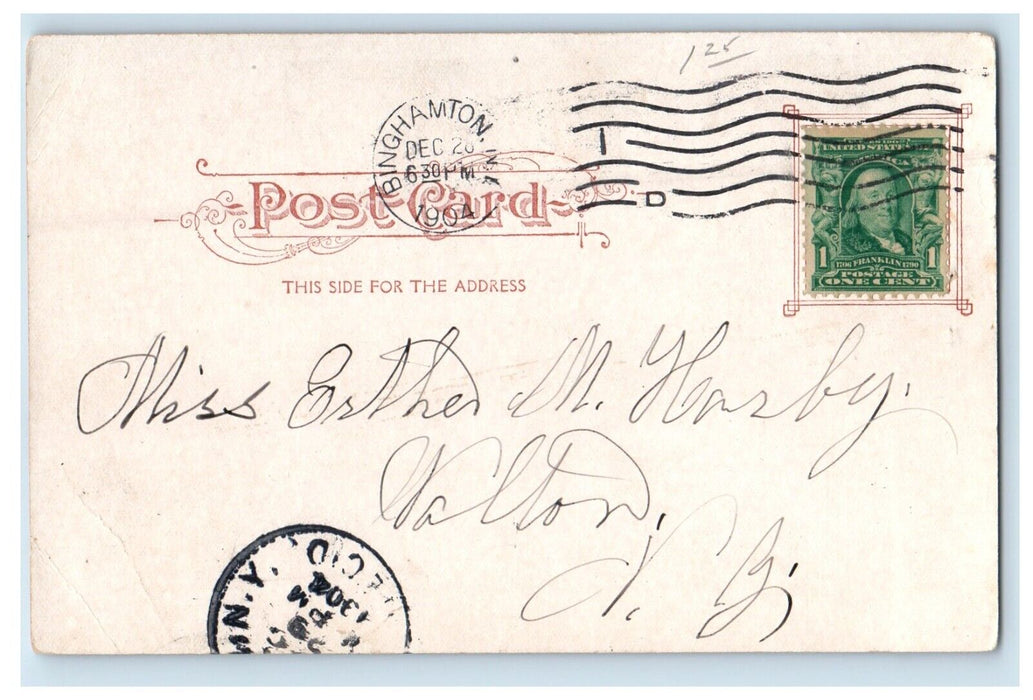 1 25
BINGHAMTON, N.Y.
DEC 28
630PM
1904
D
UNITED STATES
1 1706 FRANKLIN 1790 1
POSTAGE
ONE CENT
Post Card
THIS SIDE FOR THE ADDRESS
Miss Esther M. Hornby.
Walton,
N. Y.
N.Y. REC'D.
PM